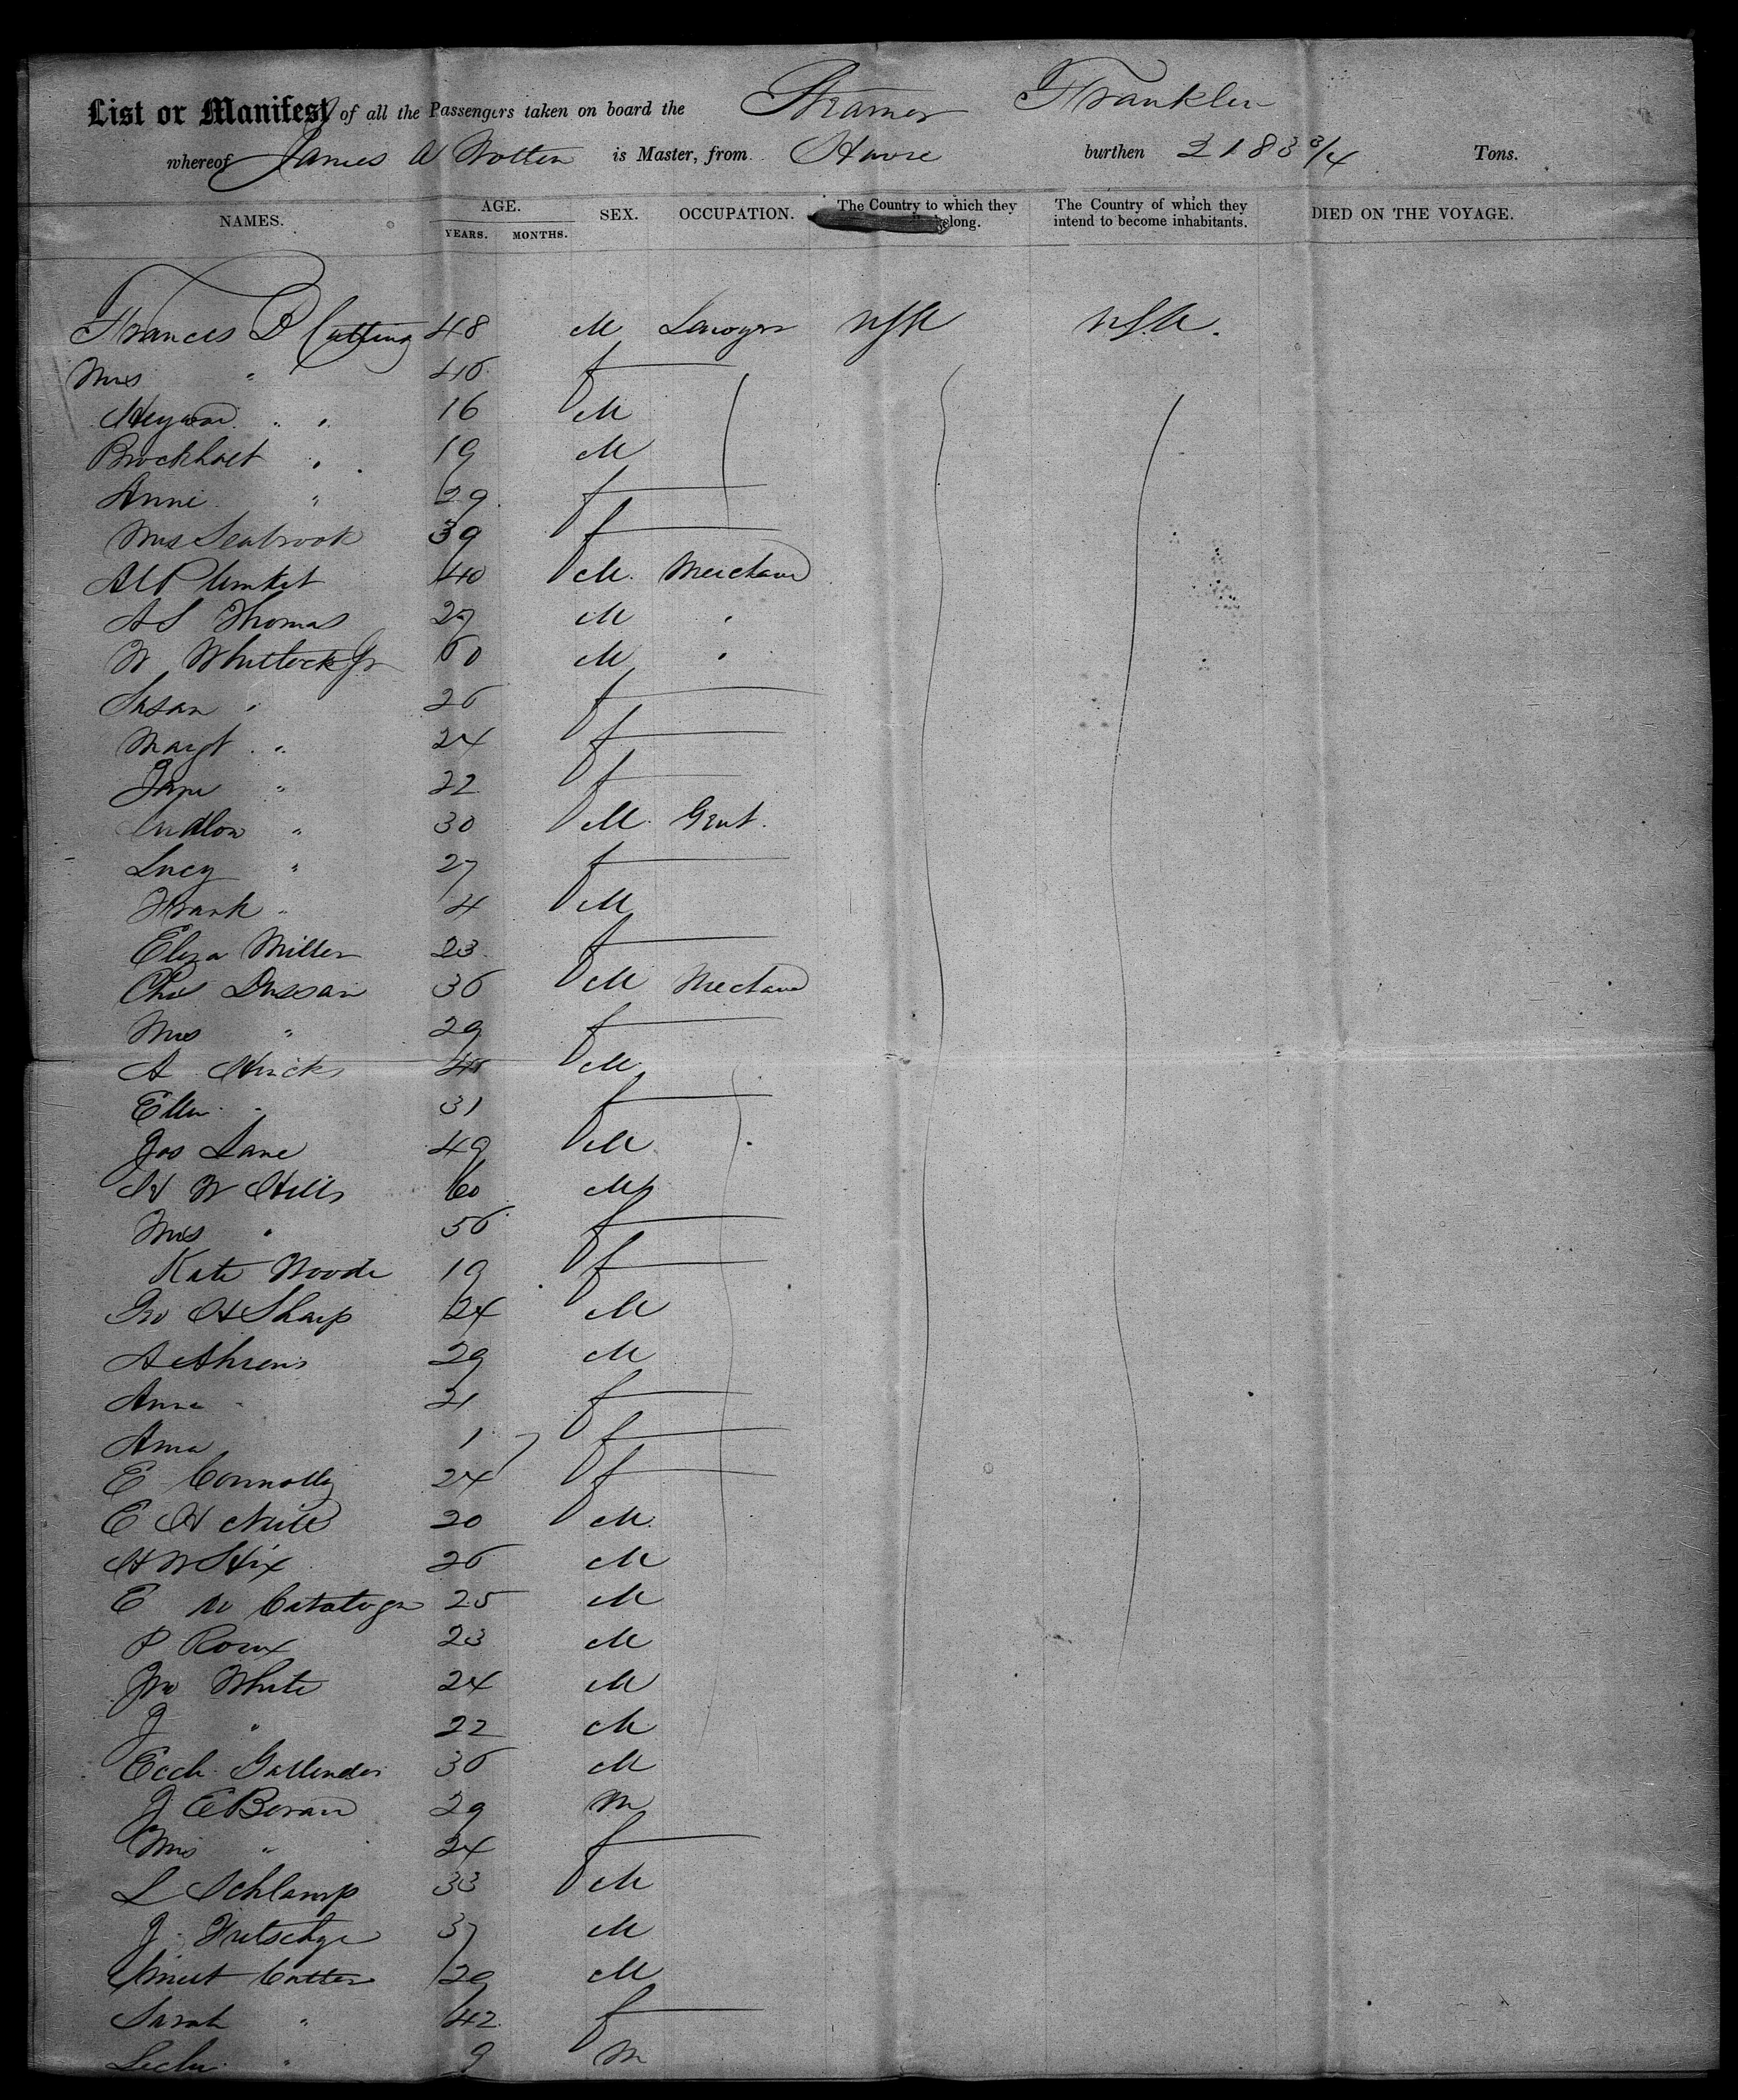 List or Manifest of all the Passengers taken on board the Steamer Franklin
whereof James A Wotten is Master, from Havre burthen 2183 3/4 Tons.
NAMES. AGE. YEARS. MONTHS. SEX. OCCUPATION. The Country to which they belong. The Country of which they intend to become inhabitants. DIED ON THE VOYAGE.
Frances B Cutting 48 M Lawyer USA USA.
Mrs " 46 f
Heyward " " 16 M
Brockholst " 19 M
Anne " 29 f
Mrs Seabrook 39 f
Plunket 40 M. Merchant
A S Thomas 27 M "
W Whitlock Jr 60 M "
Susan " 26 f
Margt " 24 f
Jane " 22 f
Ludlow " 30 M. Gent.
Lucy " 27 f
Frank " 4 M
Eliza Miller 23 f
Chas Dussan 36 M Mechant
Mrs " 29 f
A Hincks M
Ellen " 31 f
Jas Lane 49 M
H W Hills 60 M
Mrs " 56 f
Kate Woode 19 f
Jno H Sharp 24 M
A Ahrens 29 M
Anna " 21 f
Anna 1 f
E Connolly 24 f
E H Neill 20 M
H W Hix 26 M
E 25 M
P Roux 23 M
Jno White 24 M
J " 22 M
Gallender 36 M
J E Beran 29 M
Mrs " 24 f
L Schlamp 33 M
J Fritschye 37 M
29 M
Sarah " 42 f
" 9 M